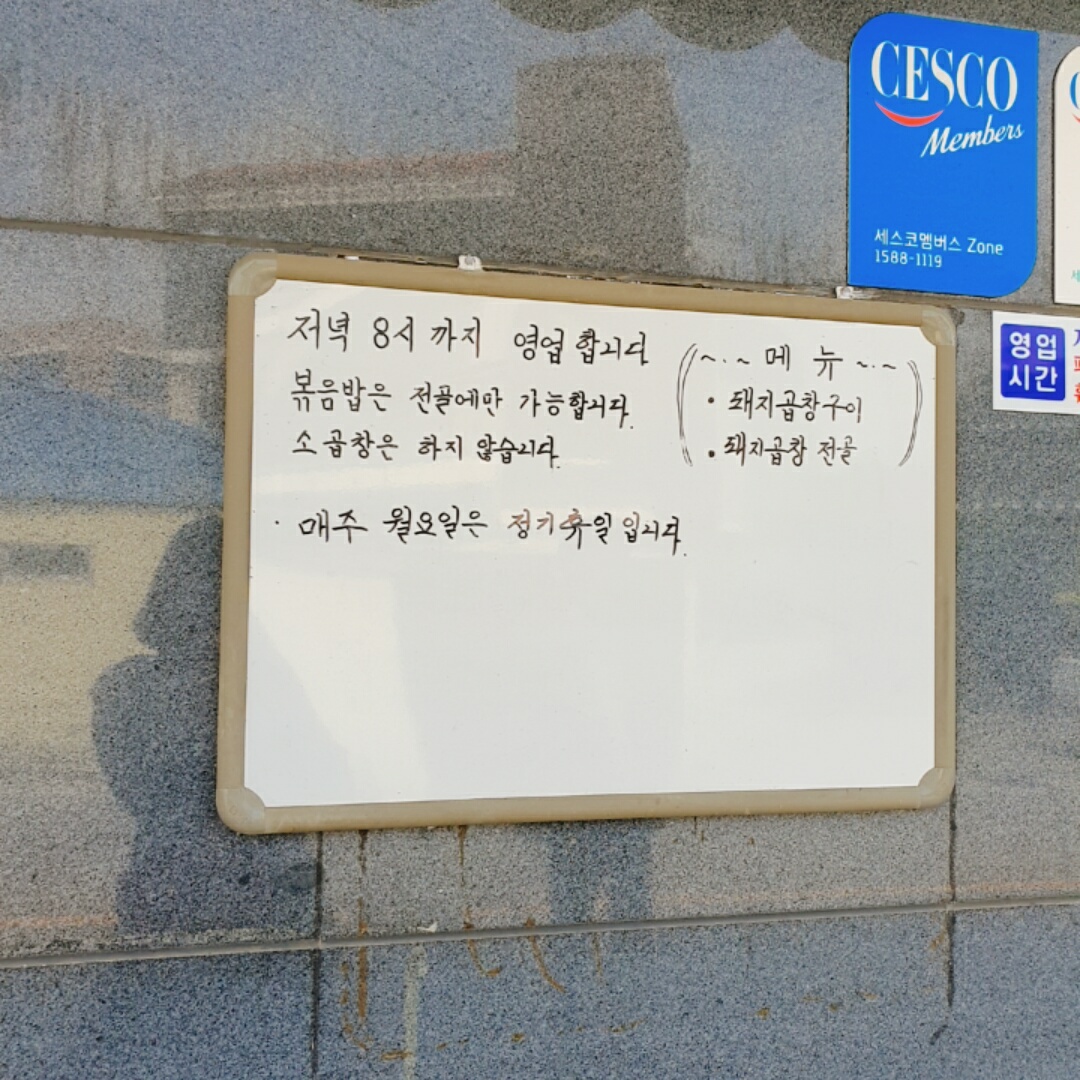 CESCO
Members
세스코멤버스 Zone
1588-1119
영업
시간
저녁 8시 까지 영업합니다
볶음밥은 전골에만 가능합니다.
소곱창은 하지 않습니다.
· 매주 월요일은 정기휴일입니다.
~·~ 메뉴 ~·~
· 돼지곱창구이
· 돼지곱창 전골